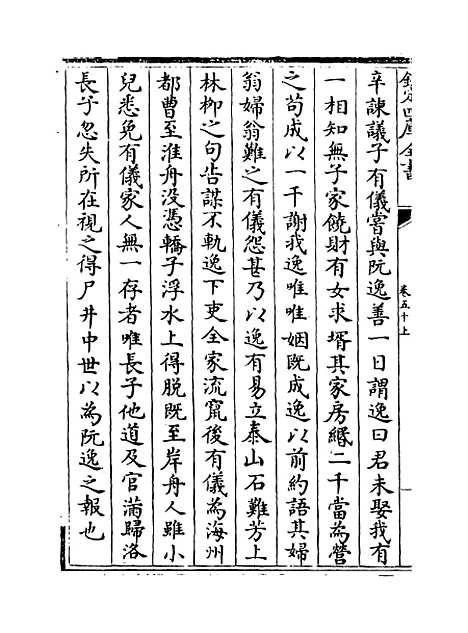 欽定四庫全書
卷五十上
辛諫議子有儀嘗與阮逸善一日謂逸曰君未娶我有
一相知無子家饒財有女求壻其家房緡二千當為營
之茍成以一千謝我逸唯唯姻既成逸以前約語其婦
翁婦翁難之有儀怨甚乃以逸有易立泰山石難芳上
林柳之句告謀不軌逸下吏全家流竄後有儀為海州
都曹至淮舟没憑轎子浮水上得脱既至岸舟人雖小
兒悉免有儀家人無一存者唯長子他道及官滿歸洛
長子忽失所在視之得尸井中世以為阮逸之報也